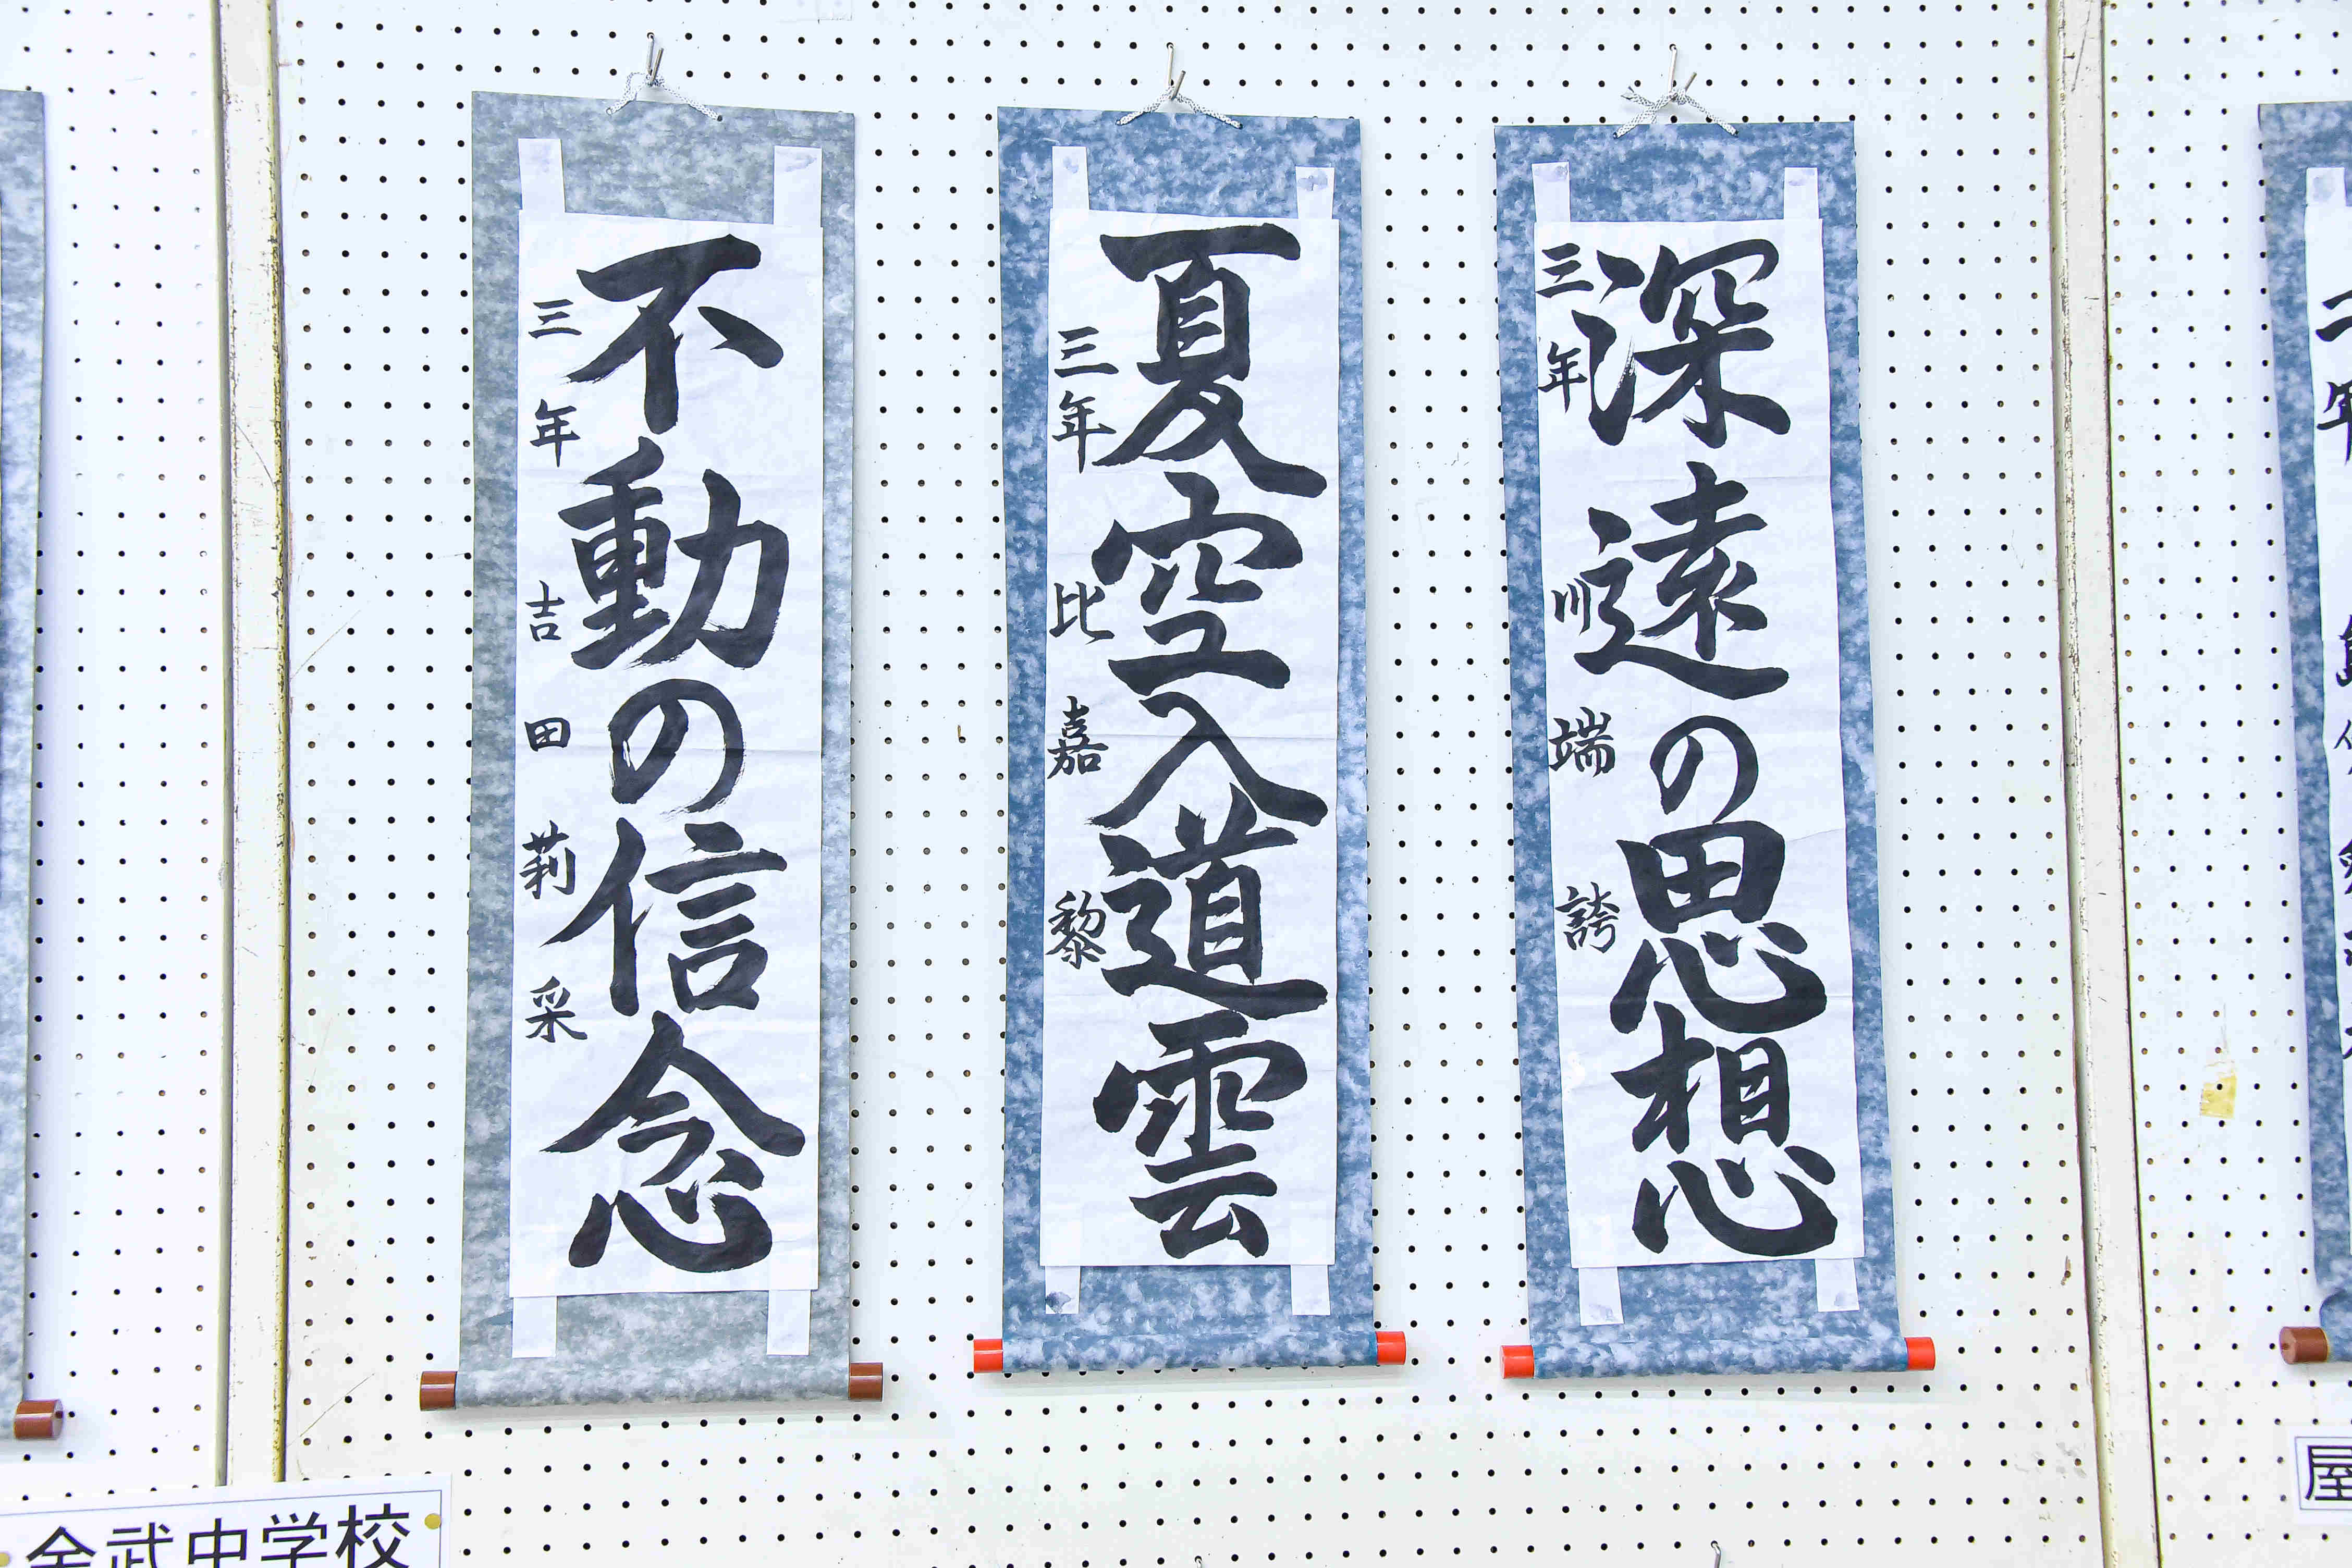 深遠の思想
三年 順端 誇
夏空入道雲
三年 比嘉 黎
不動の信念
三年 吉田 莉采
金武中学校
屋